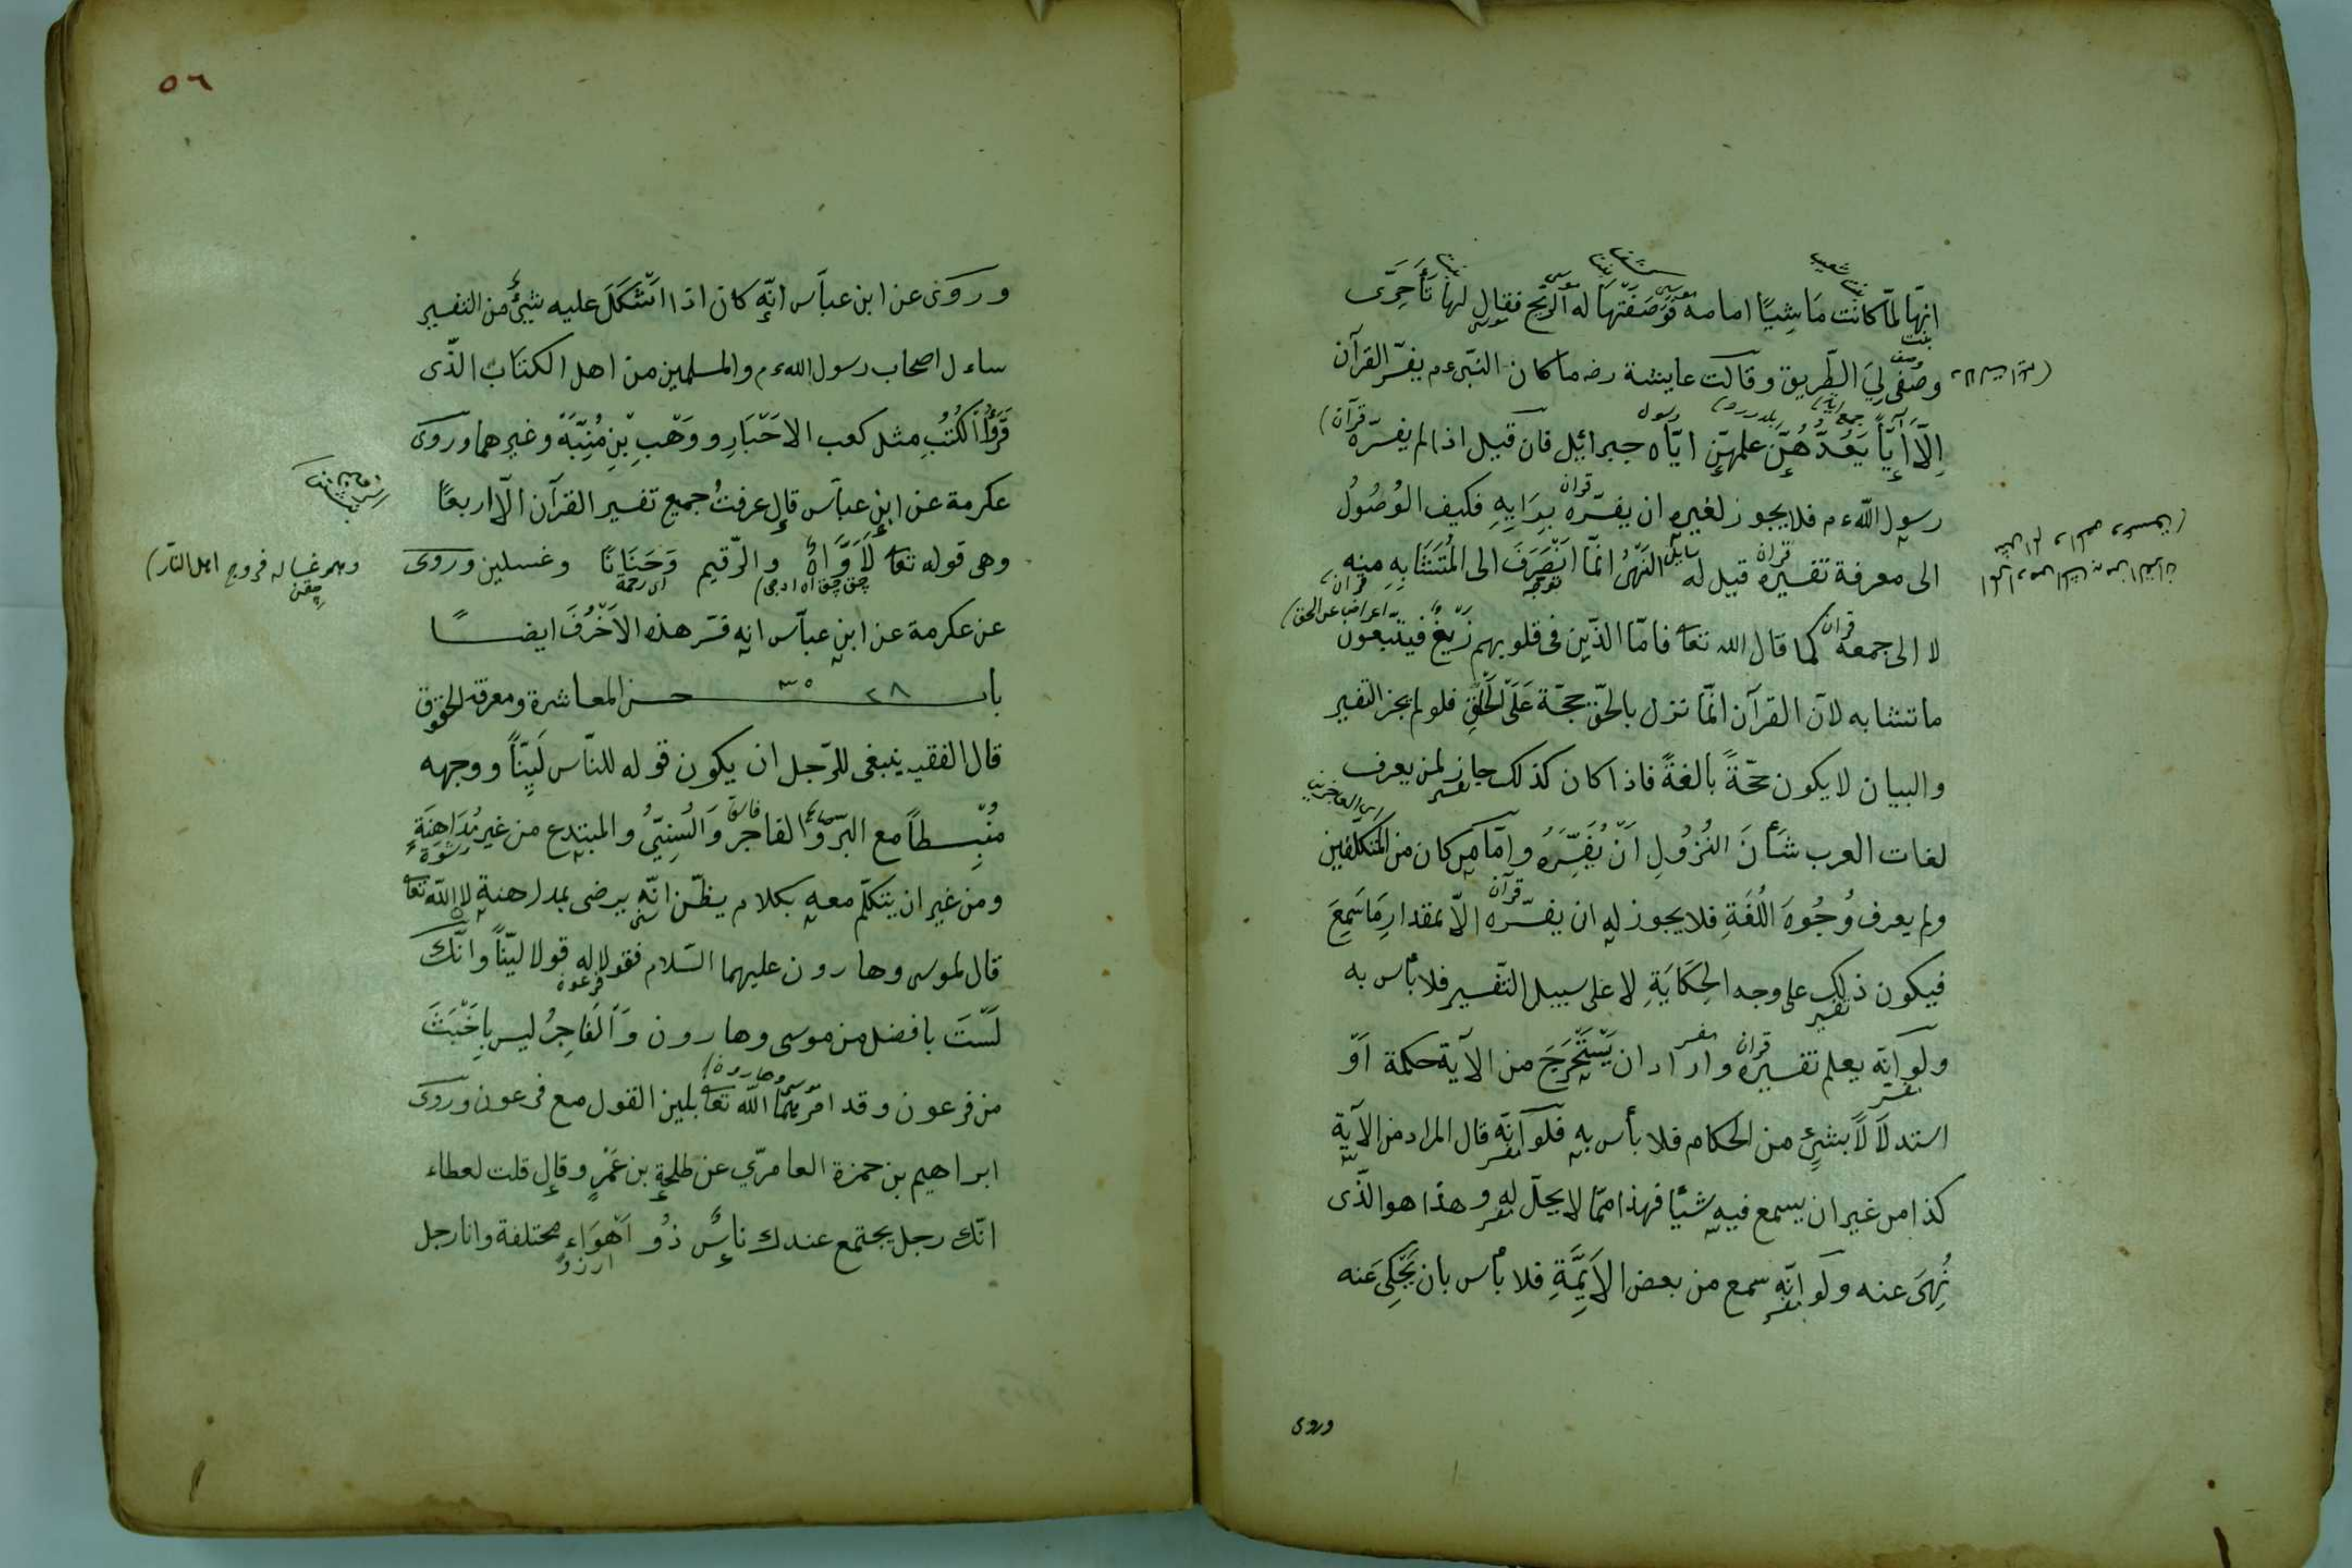 انها لمّا كانت مَاشِيًا امامه فَوَصَفَتْهَا له الرّيح فقال لها تَأَخَّرِى
وصُفى لِىَ الطّريق وقالت عايشة رضه ما كان النّبىءم يفسّر القرآن
اِلَّا أٰيًا يَعُدُّهُنَّ علمهنّ ايّاه جبرائيل فان قيل اذا لم يفسّره
رسول اللّه ءم فلا يجوز لغيره ان يفسّره بِرَايِهِ فكيف الوُصُولُ
الى معرفة تفسيره قيل له النَهْىُ انّما انْصَرَفَ الى المُتَشَابِهِ منه
لا الى جمعه كما قال الله تعا فامّا الذّين فى قلوبهم زَيْغٌ فيتّبعون
ما تشابه لانّ القرآن انّما نزل بالحقّ حجّة عَلَى الْخَلْقِ فلو لم يجز التفسير
والبيان لا يكون حجّةً بالغةً فاذا كان كذلك جاز لمن يعرف
لغات العرب شَأْنَ النُزُولِ اَنْ يُفَسِّرَهُ وامّا من كان من المتكلّفين
ولم يعرف وُجُوهَ اللُغَةِ فلا يجوز له ان يفسّره الّا بمقدارِ مَا سَمِعَ
فيكون ذلك على وجه الحِكَايَةِ لا على سبيل التّفسير فلا بأس به
ولو انّه يعلم تفسيره واراد ان يَسْتَخْرِجَ من الآية حكمة اَوْ
استدلَالًا بشئٍ من الحكام فلا بأس به فلو انّه قال المراد من الآية
كذا من غير ان يسمع فيه شئًا فهذا ممّا لا يحلّ له وهذا هو الذّى
نُهِىَ عنه ولو انّه سمع من بعض الاَئِمَّةِ فلا بأس بان يَحْكِىَ عنه
وروى
٥٦
وروى عن ابن عبّاس انّه كان اذا اشْكَلَ عليه شئٌ من التفسير
ساءل اصحاب رسول اللهءم والمسلمين من اهل الكتاب الذّى
قَرَؤُا الْكُتُبَ مثل كعب الاحْبَارِ ووَهْبِ بْنِ مُنِبَّهَ وغيرهما وروى
عكرمة عن ابن عبّاس قال عرفتُ جميع تفسير القرآن الّا اربعًا
وهى قوله تعا لَأَوَّاهٌ والرّقيم وَحَنَانًا وغسلين وروى
اى رحمة
وهو غساله فروج اهل النّار
عن عكرمة عن ابن عبّاس انه فسّر هذه الاَحْرُفَ ايضًا
باب ٢٨ ٣٥ حسن المعاشرة ومعرفة الحقوق
قال الفقيه ينبغى للرّجل ان يكون قوله للنّاس لَيِّنًا ووجهه
مُنْبِسطًا مع البَرّ والفاجرِ وَالسُنِّىِّ والمبتدِع من غير مُدَاهِنَةٍ
رشوة
ومن غير ان يتكلّم معه بكلام يظنّ انّه يرضى بمداهنة لانّ اللّه تعا
قال لموسى وهارون عليهما السّلام فقولا له قولا ليّنًا وانّك
لَسْتَ بافضل من موسى وهارون وَالْفَاجِرُ ليس بِاَخْبَثَ
من فرعون وقد امَرَهُمَا اللّه تعا بلين القول مع فرعون وروى
ابراهيم بن حمزة العامرّي عن طلحة بن عَمْرٍ وقال قلت لعطاء
انّك رجل يجتمع عندك ناسٌ ذُو اَهْوَاءٍ مختلفة وانا رجل
ارزو